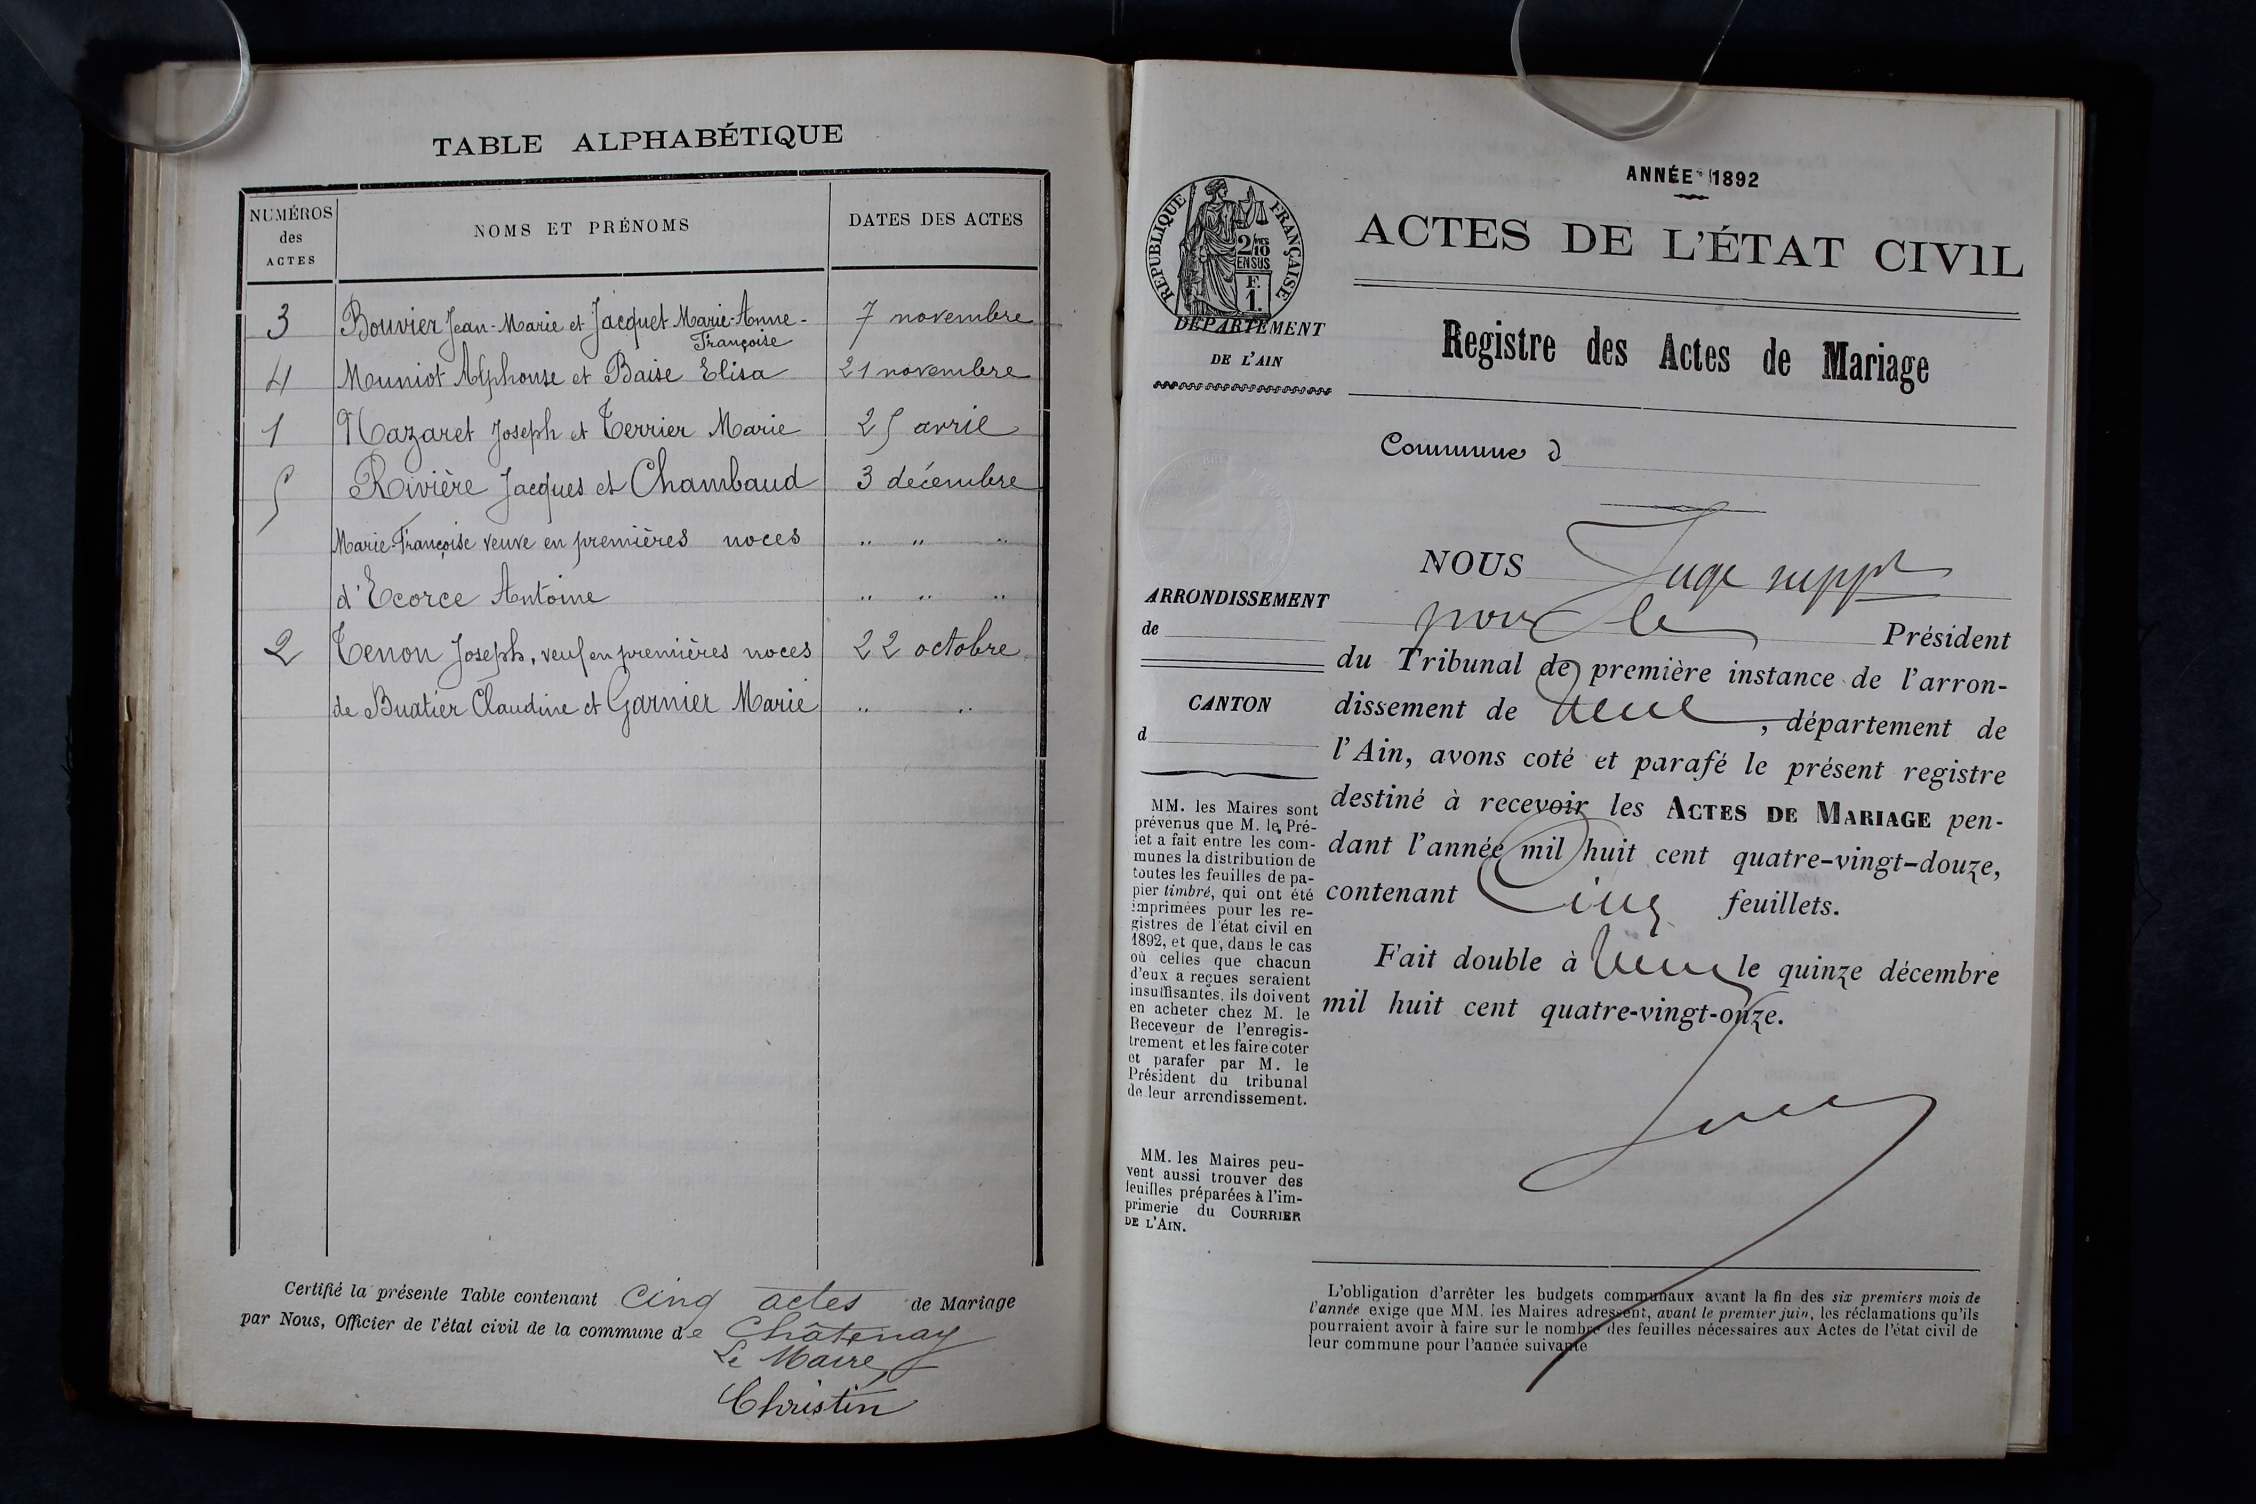 TABLE ALPHABÉTIQUE
NUMÉROS
des
ACTES
NOMS ET PRÉNOMS
DATES DES ACTES
3 Bouvier Jean-Marie et Jacquet Marie-Anne- 7 novembre
Françoise
4 Muniot Alphonse et Baise Elisa 21 novembre
1 Nazaret Joseph et Terrier Marie 25 avril
5 Rivière Jacques et Chambaud 3 décembre
Marie-Françoise veuve en premières noces " " "
d'Ecorce Antoine " " "
2 Tenon Joseph, veuf en premières noces 22 octobre
de Buatier Claudine et Garnier Marie " "
Certifié la présente Table contenant cinq actes de Mariage
par Nous, Officier de l'état civil de la commune de Châtenay
Le Maire
Christin
ANNÉE 1892
ACTES DE L'ÉTAT CIVIL
Registre des Actes de Mariage
Commune d
RÉPUBLIQUE FRANÇAISE
2/10
EN SUS
F.
1.
DÉPARTEMENT
DE L'AIN
ARRONDISSEMENT
de
CANTON
d
MM. les Maires sont
prévenus que M. le Pré-
fet a fait entre les com-
munes la distribution de
toutes les feuilles de pa-
pier timbré, qui ont été
imprimées pour les re-
gistres de l'état civil en
1892, et que, dans le cas
où celles que chacun
d'eux a reçues seraient
insuffisantes, ils doivent
en acheter chez M. le
Receveur de l'enregis-
trement et les faire coter
et parafer par M. le
Président du tribunal
de leur arrondissement.
MM. les Maires peu-
vent aussi trouver des
feuilles préparées à l'im-
primerie du COURRIER
DE L'AIN.
NOUS Juge suppt
pour le Président
du Tribunal de première instance de l'arron-
dissement de , département de
l'Ain, avons coté et parafé le présent registre
destiné à recevoir les ACTES DE MARIAGE pen-
dant l'année mil huit cent quatre-vingt-douze,
contenant Cinq feuillets.
Fait double à le quinze décembre
mil huit cent quatre-vingt-onze.
L'obligation d'arrêter les budgets communaux avant la fin des six premiers mois de
l'année exige que MM. les Maires adressent, avant le premier juin, les réclamations qu'ils
pourraient avoir à faire sur le nombre des feuilles nécessaires aux Actes de l'état civil de
leur commune pour l'année suivante